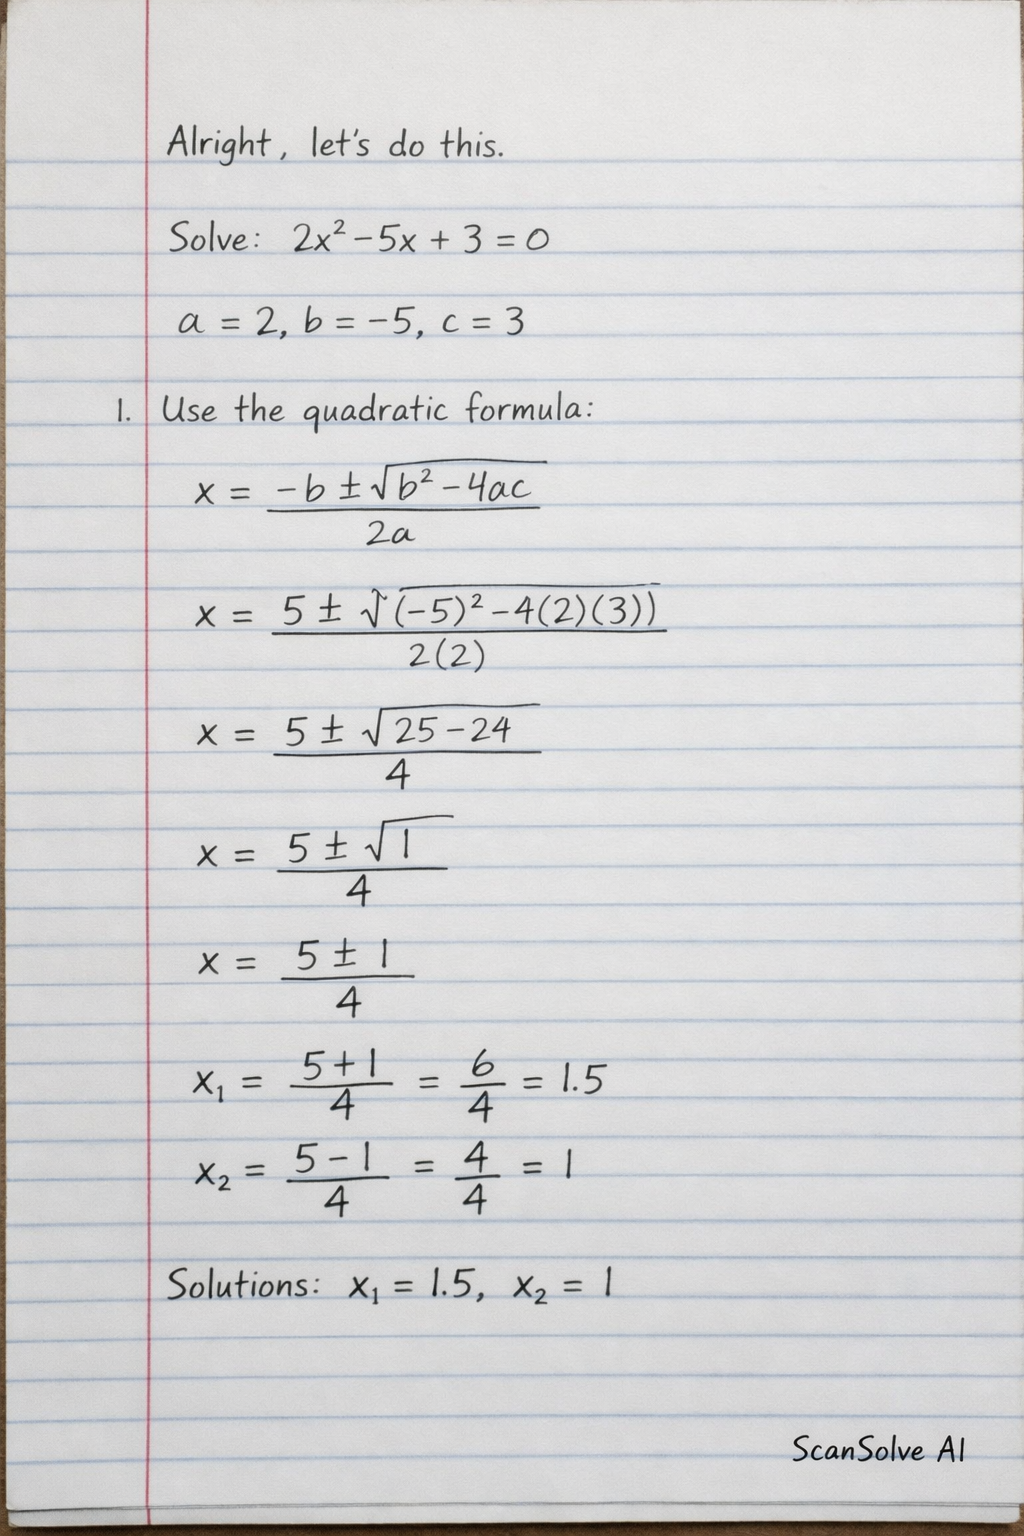 Alright, let's do this.
Solve: 2x² - 5x + 3 = 0
a = 2, b = -5, c = 3
1. Use the quadratic formula:
x = (-b ± √(b² - 4ac)) / 2a
x = (5 ± √((-5)² - 4(2)(3))) / 2(2)
x = (5 ± √(25 - 24)) / 4
x = (5 ± √1) / 4
x = (5 ± 1) / 4
x₁ = (5 + 1) / 4 = 6/4 = 1.5
x₂ = (5 - 1) / 4 = 4/4 = 1
Solutions: x₁ = 1.5, x₂ = 1
ScanSolve AI